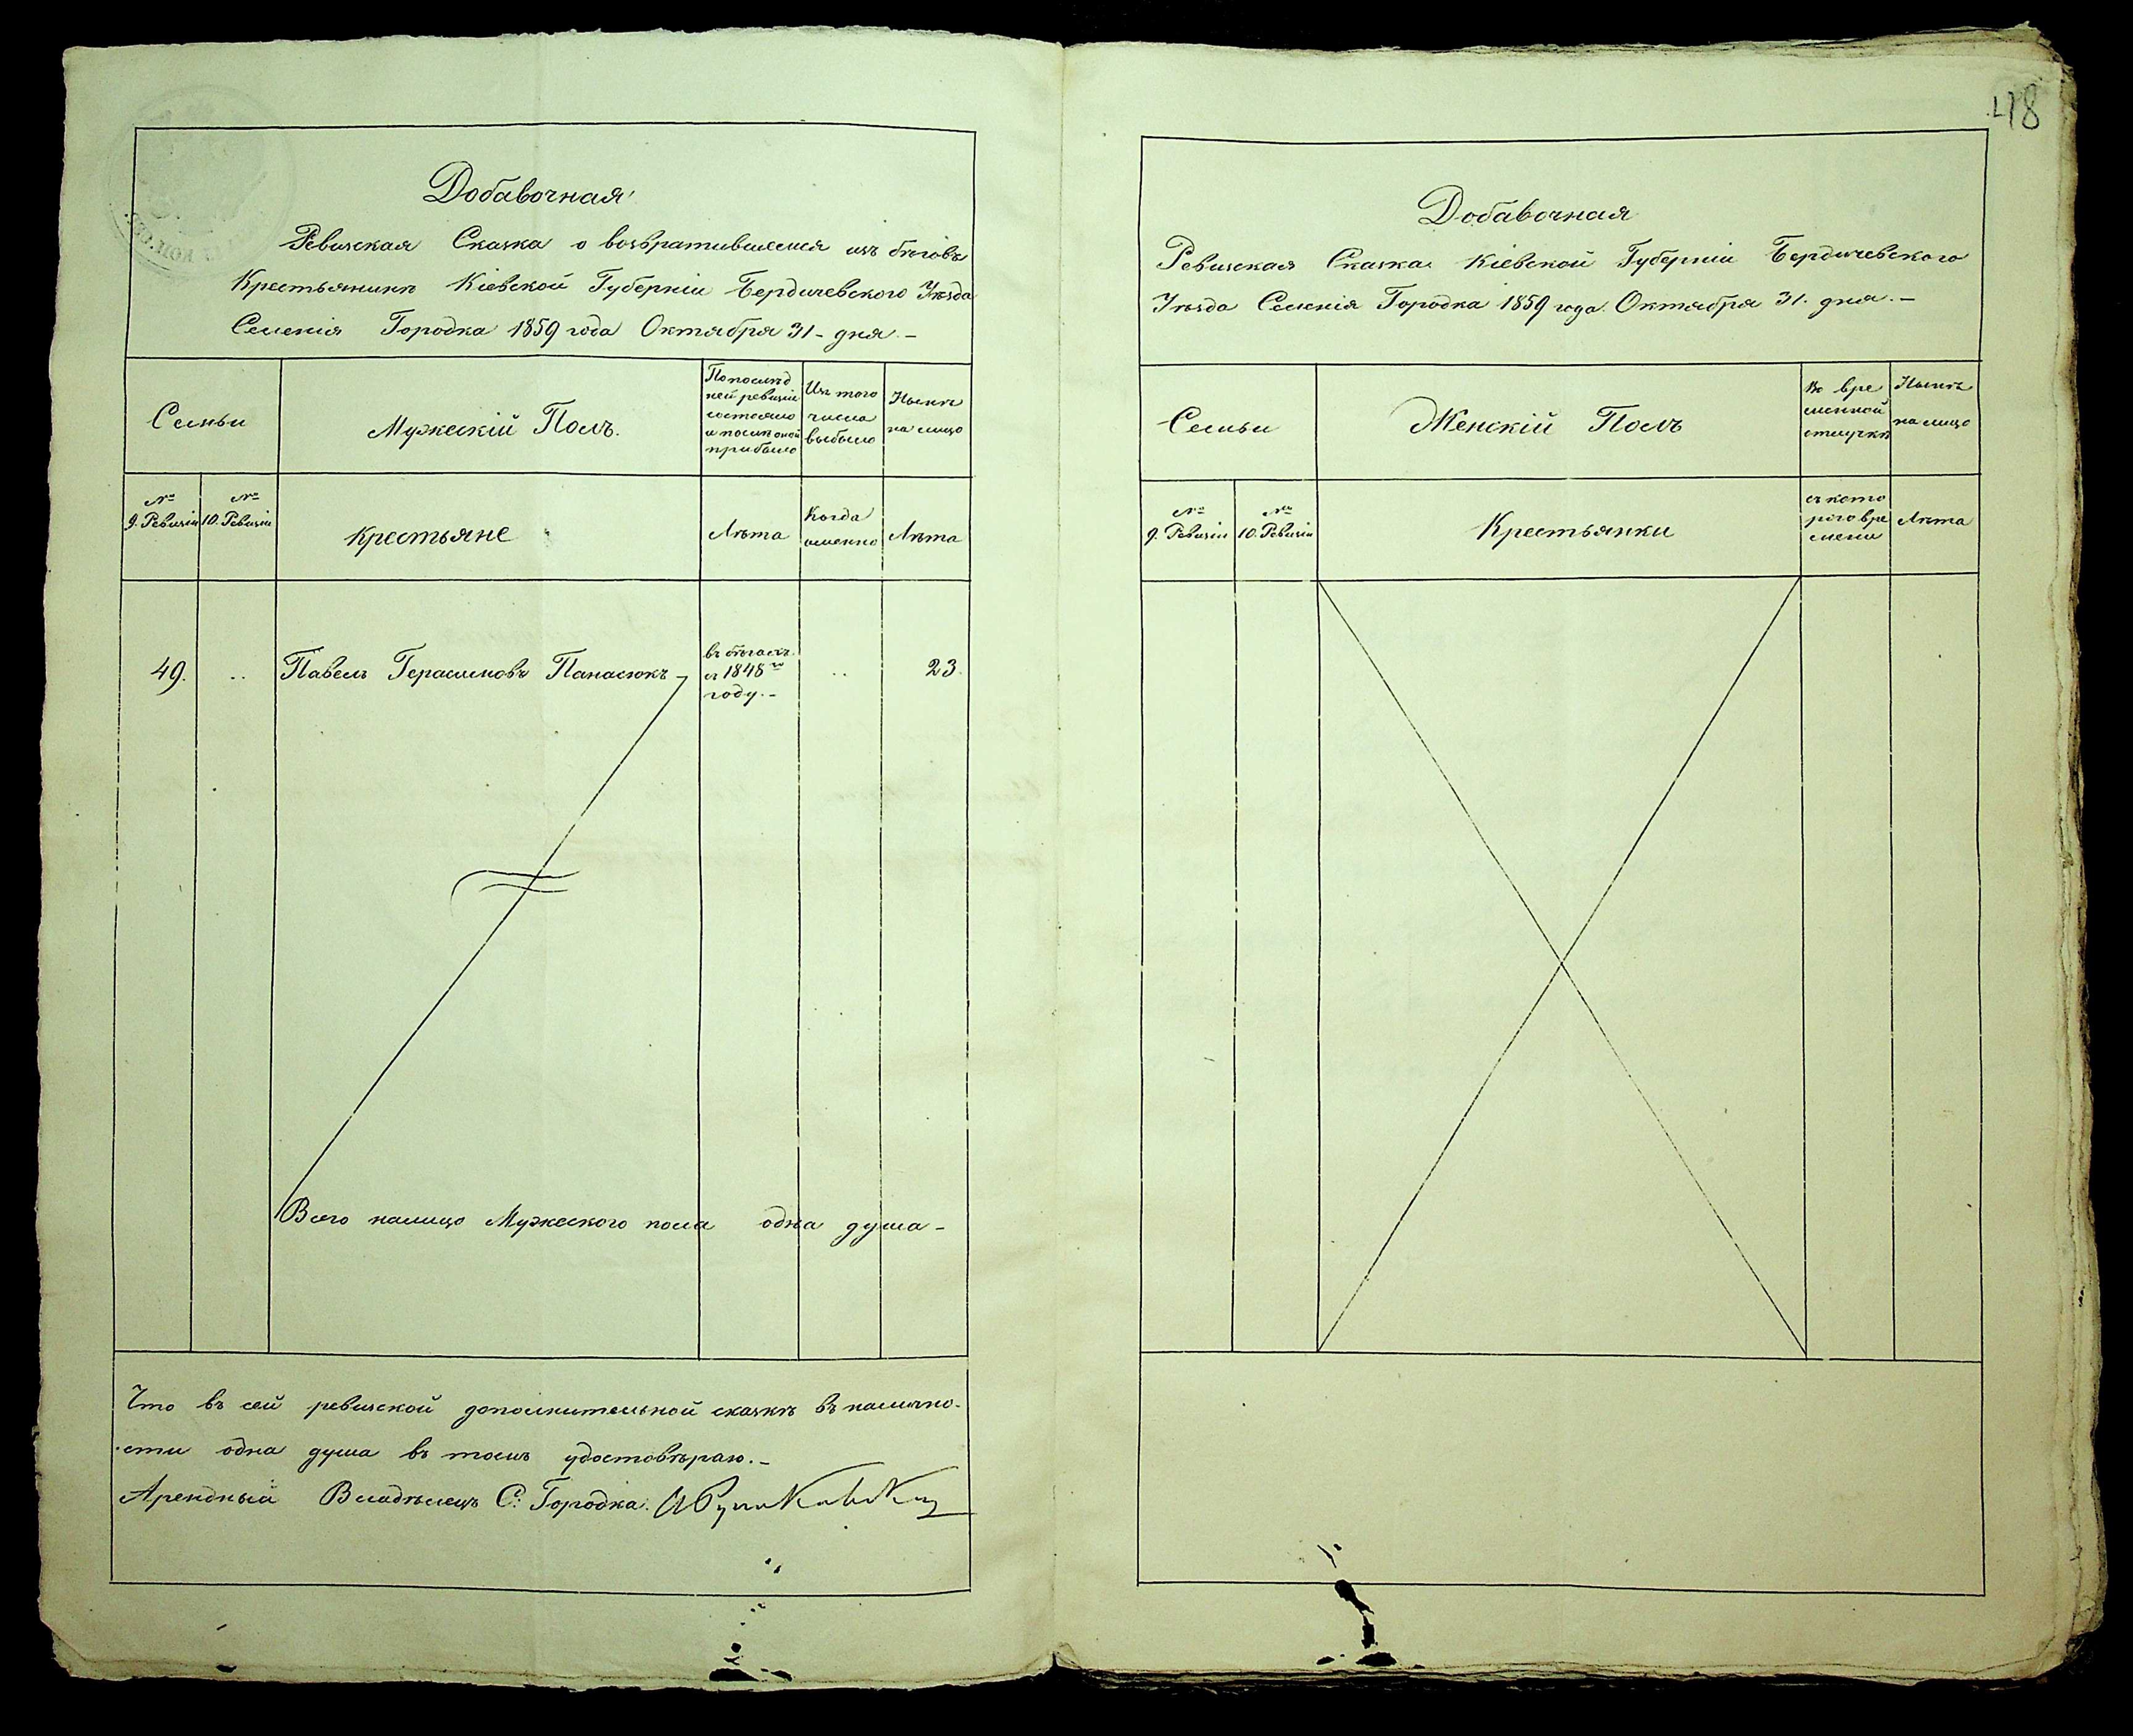 Добавочная
Ревизская Сказка о возвратившемся изъ бѣговъ
Крестьянинѣ Кіевской Губерніи Бердичевского Уѣзда
Селенія Городка 1859 года Октября 31 - дня. -
Семьи
Мужескій Полъ.
По послѣд
ней ревизіи
состояло
и послѣ оной
прибыло
Изъ того
числа
выбыло
Нынѣ
на лицо
№
9. Ревизіи
№
10. Ревизіи
Крестьяне
Лѣта
Когда
именно
Лѣта
49.
Павелъ Герасимовъ Панасюкъ -
въ бѣгахъ
съ 1848го
году. -
..
23.
Всего налицо Мужеского пола одна душа -
Что въ сей ревизской дополнительной сказкѣ въ налично-
сти одна душа въ томъ удостовѣраю. -
Арендный Владѣлецъ С: Городка.
48
Добавочная
Ревизская Сказка Кіевской Губерніи Бердичевского
Уѣзда Селенія Городка 1859 года Октября 31. дня. -
Семьи
Женскій Полъ
Во вре
менной
отлучкѣ
Нынѣ
на лицо
№
9. Ревизіи
№
10. Ревизіи
Крестьянки
съ кото
рого вре
мени
Лѣта